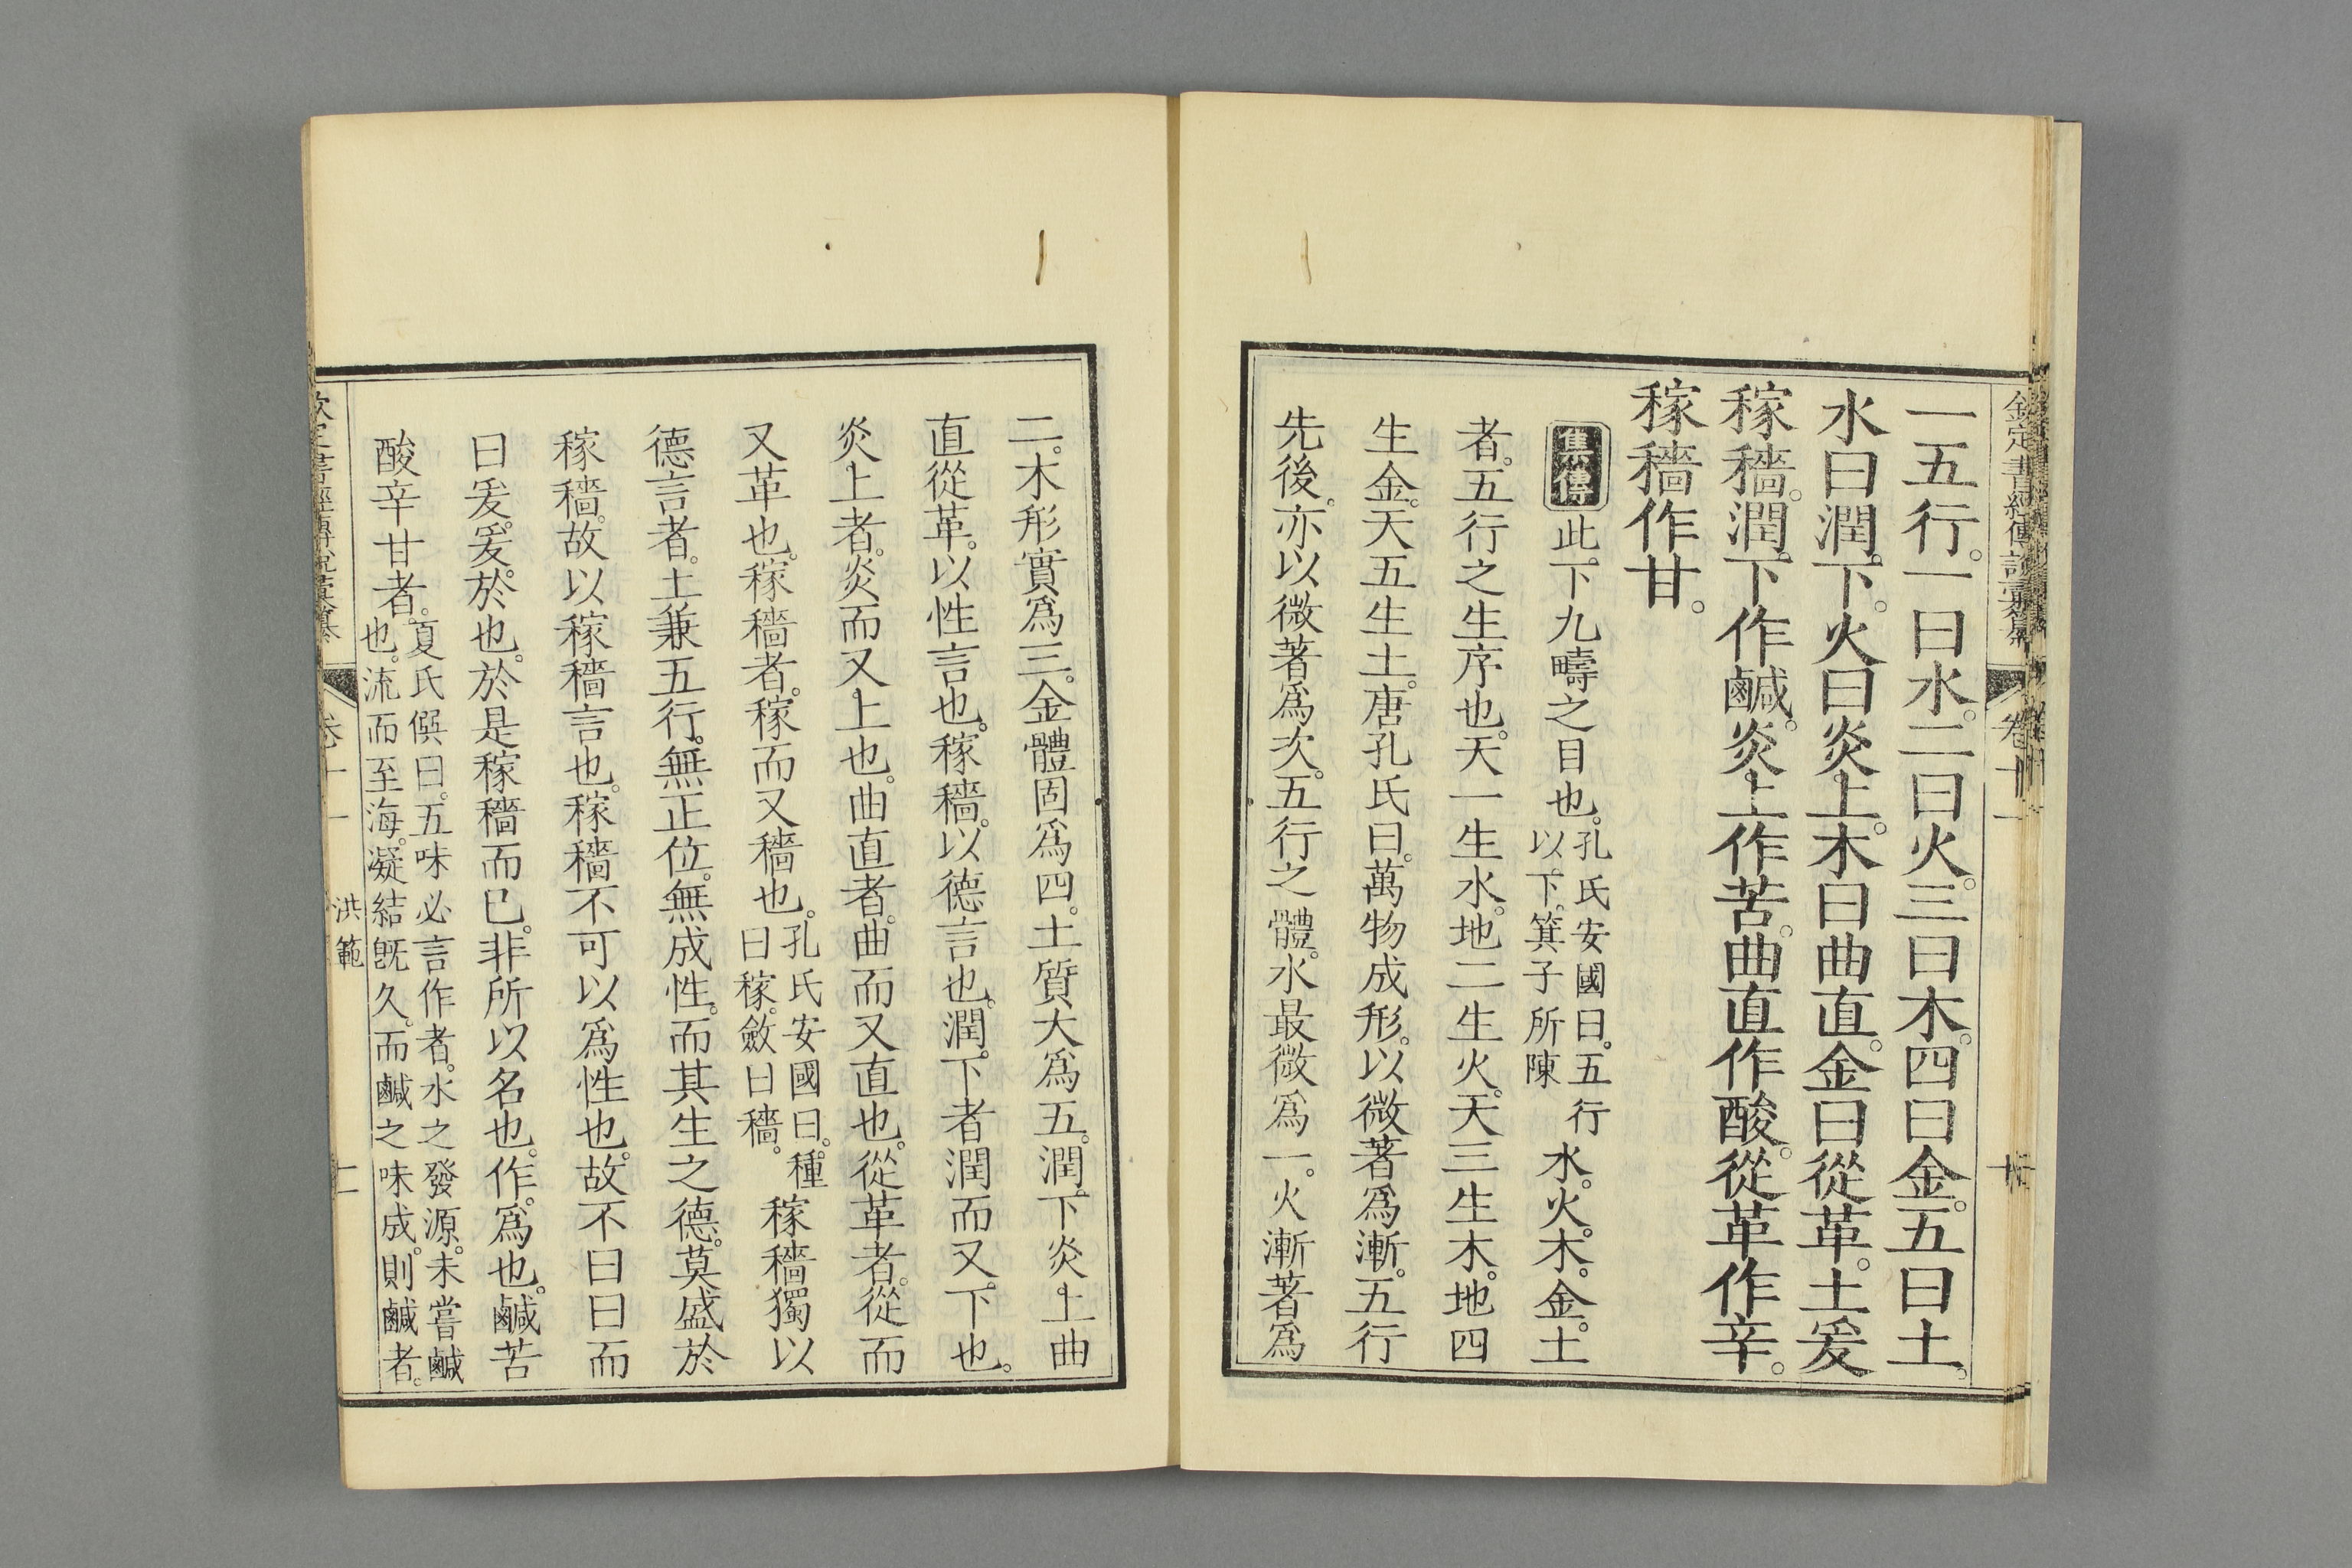 一五行。一曰水。二曰火。三曰木。四曰金。五曰土。
水曰潤下。火曰炎上。木曰曲直。金曰從革。土爰
稼穡。潤下作鹹。炎上作苦。曲直作酸。從革作辛。
稼穡作甘。
集傳 此下九疇之目也。孔氏安國曰。五行
以下。箕子所陳
水。火。木。金。土
者。五行之生序也。天一生水。地二生火。天三生木。地四
生金。天五生土。唐孔氏曰。萬物成形。以微著爲漸。五行
先後。亦以微著爲次。五行之體。水最微爲一。火漸著爲
二。木形實爲三。金體固爲四。土質大爲五。潤下炎上曲
直從革。以性言也。稼穡。以德言也。潤下者潤而又下也。
炎上者。炎而又上也。曲直者。曲而又直也。從革者。從而
又革也。稼穡者。稼而又穡也。孔氏安國曰。種
曰稼。斂曰穡。
稼穡獨以
德言者。土兼五行。無正位。無成性。而其生之德。莫盛於
稼穡。故以稼穡言也。稼穡不可以爲性也。故不曰曰而
曰爰。爰。於也。於是稼穡而已。非所以名也。作。爲也。鹹苦
酸辛甘者。夏氏僎曰。五味必言作者。水之發源。未嘗鹹
也。流而至海。凝結旣久。而鹹之味成。則鹹者。
卷十一
洪範